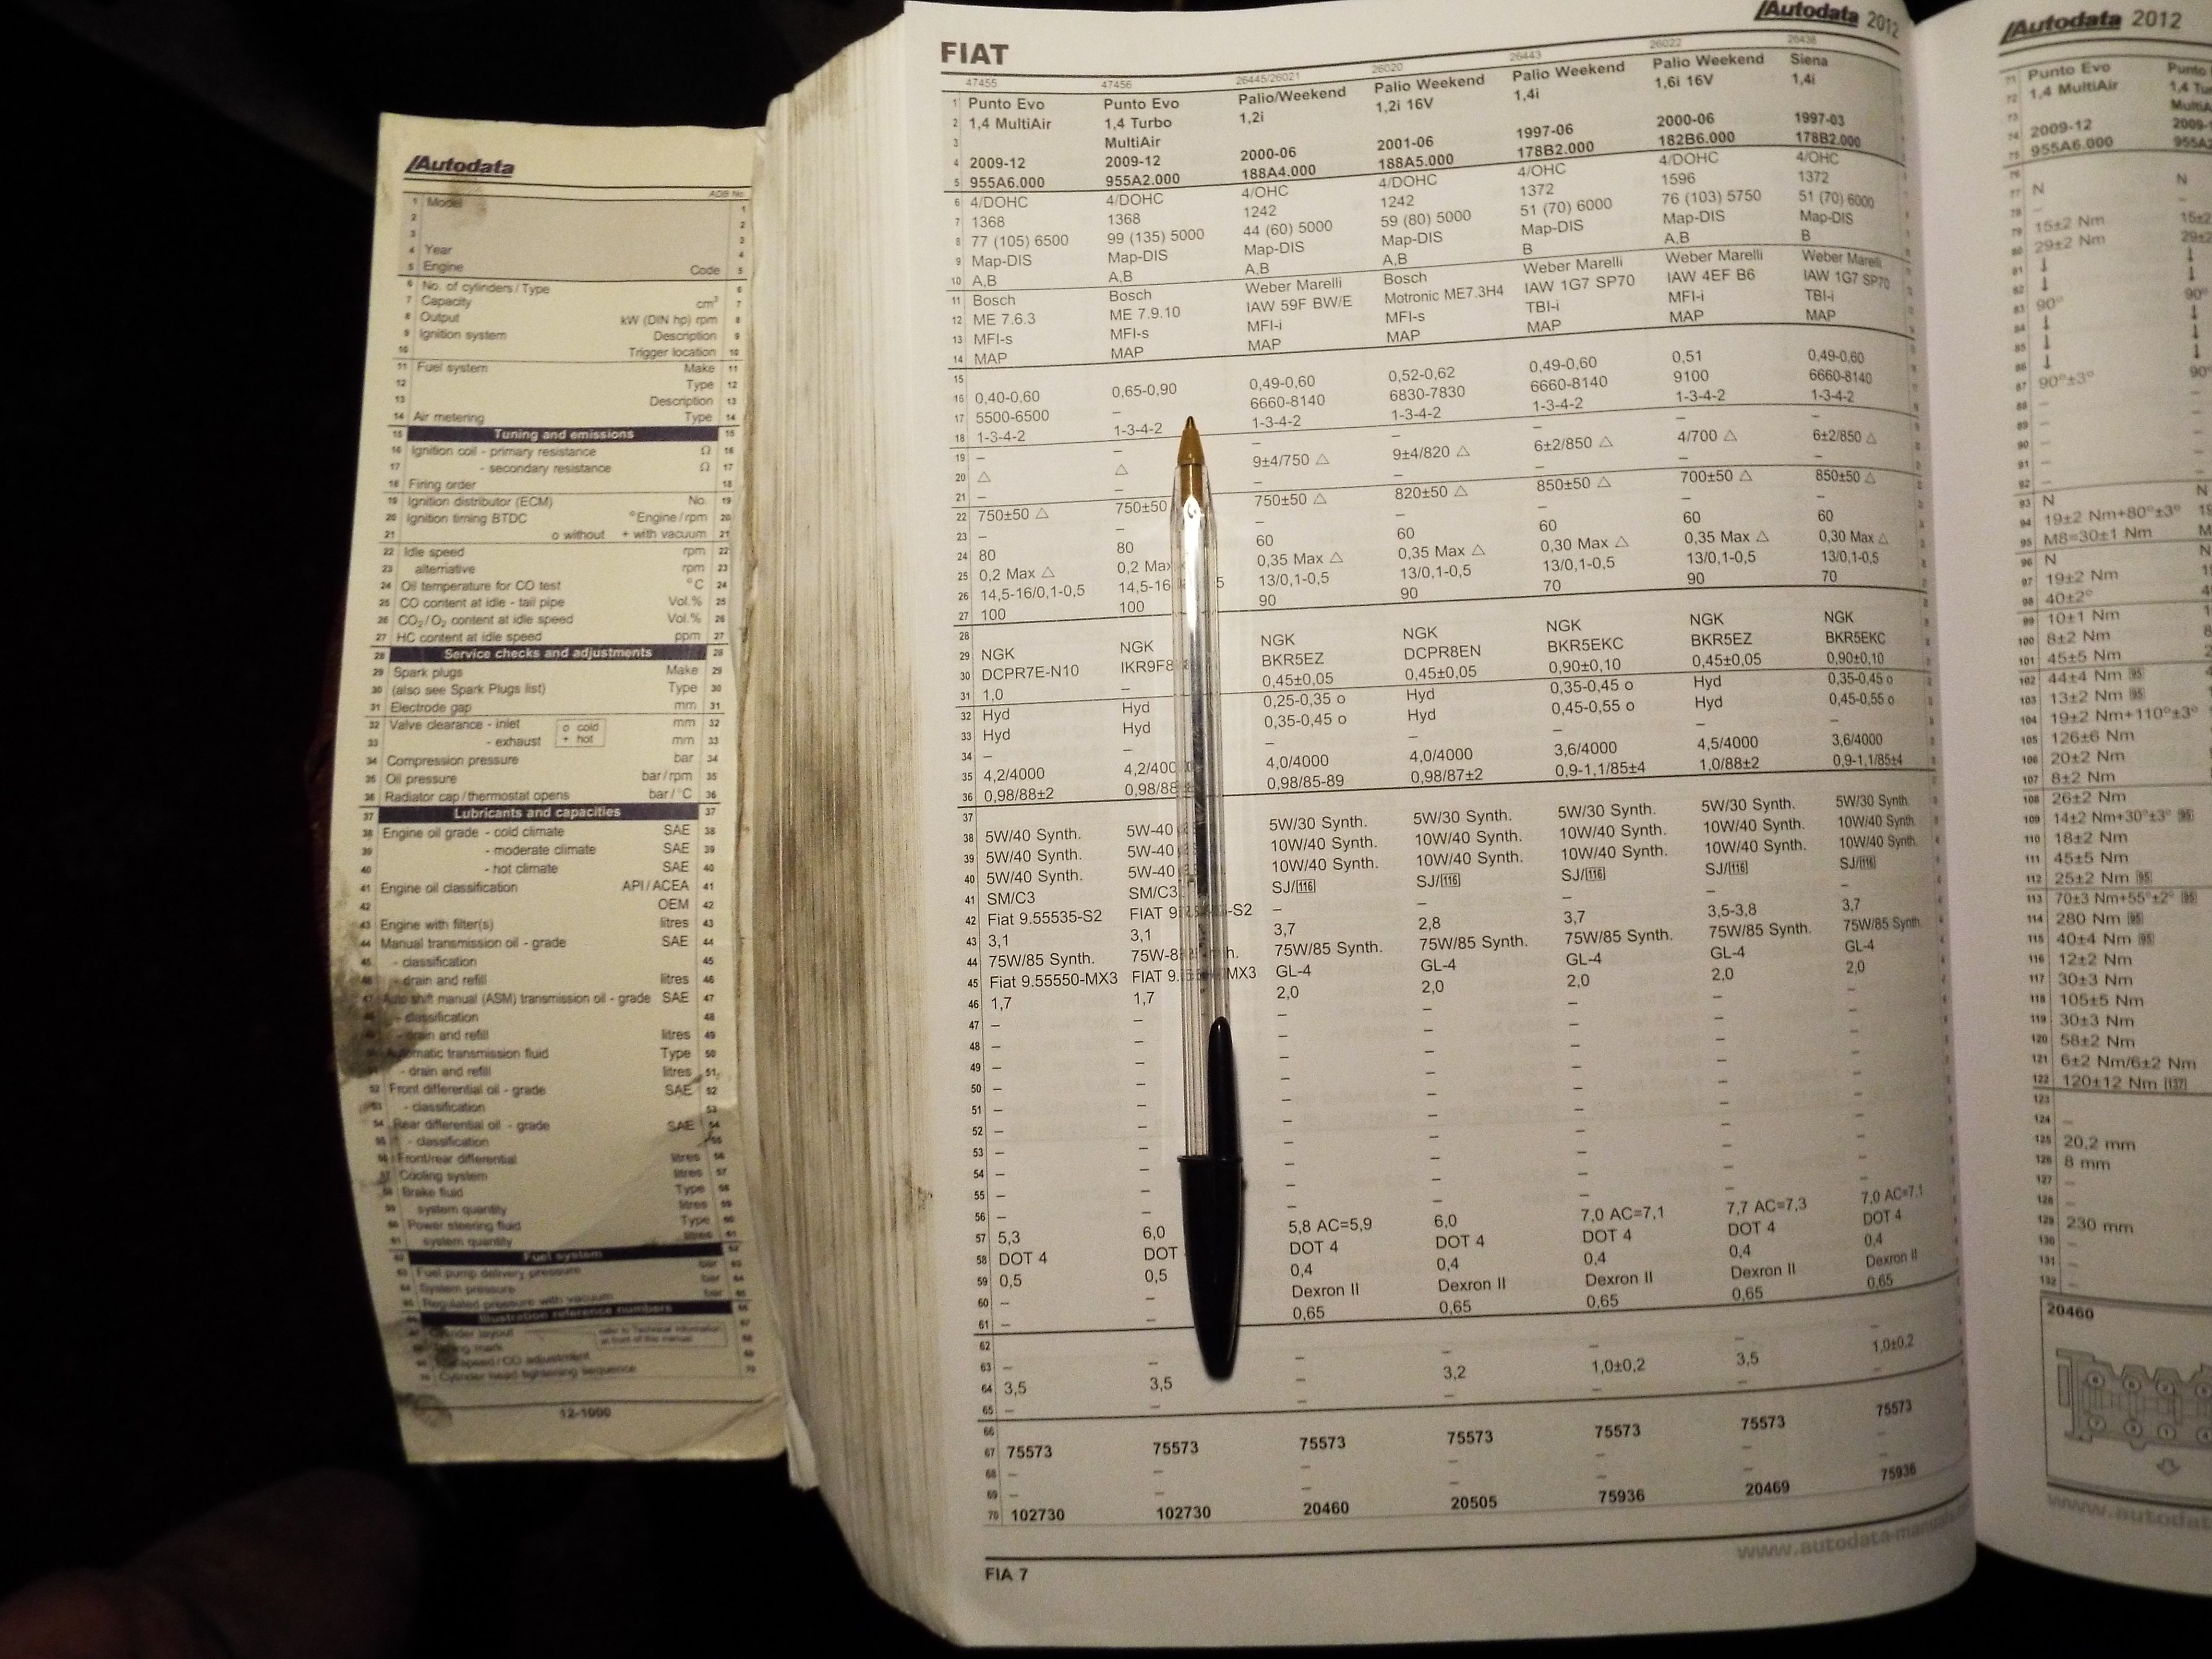 Autodata
ADB No.
1 Model 1
2 2
3 3
4 Year 4
5 Engine Code 5
6 No. of cylinders/Type 6
7 Capacity cm³ 7
8 Output kW (DIN hp) rpm 8
9 Ignition system Description 9
10 Trigger location 10
11 Fuel system Make 11
12 Type 12
13 Description 13
14 Air metering Type 14
15 Tuning and emissions 15
16 Ignition coil - primary resistance Ω 16
17 - secondary resistance Ω 17
18 Firing order 18
19 Ignition distributor (ECM) No. 19
20 Ignition timing BTDC °Engine/rpm 20
21 o without + with vacuum 21
22 Idle speed rpm 22
23 alternative rpm 23
24 Oil temperature for CO test °C 24
25 CO content at idle - tail pipe Vol.% 25
26 CO₂/O₂ content at idle speed Vol.% 26
27 HC content at idle speed ppm 27
28 Service checks and adjustments 28
29 Spark plugs Make 29
30 (also see Spark Plugs list) Type 30
31 Electrode gap mm 31
32 Valve clearance - inlet o cold mm 32
33 - exhaust + hot mm 33
34 Compression pressure bar 34
35 Oil pressure bar/rpm 35
36 Radiator cap/thermostat opens bar/°C 36
37 Lubricants and capacities 37
38 Engine oil grade - cold climate SAE 38
39 - moderate climate SAE 39
40 - hot climate SAE 40
41 Engine oil classification API/ACEA 41
42 OEM 42
43 Engine with filter(s) litres 43
44 Manual transmission oil - grade SAE 44
45 - classification 45
46 - drain and refill litres 46
47 Auto shift manual (ASM) transmission oil - grade SAE 47
- classification 48
- drain and refill litres 49
Automatic transmission fluid Type 50
- drain and refill litres 51
52 Front differential oil - grade SAE 52
53 - classification 53
54 Rear differential oil - grade SAE 54
55 - classification 55
56 Front/rear differential litres 56
57 Cooling system litres 57
58 Brake fluid Type 58
59 system quantity litres 59
60 Power steering fluid Type 60
61 system quantity litres 61
62 Fuel system 62
63 Fuel pump delivery pressure bar 63
64 System pressure bar 64
65 Regulated pressure with vacuum bar 65
66 Illustration reference numbers 66
Cylinder layout refer to Technical Information 67
at front of this manual
mark 68
speed/CO adjustment 69
70 Cylinder head tightening sequence 70
12-1000
FIAT
Autodata 2012
47455 47456 26445/26021 26020 26443 26022 26438
1 Punto Evo Punto Evo Palio/Weekend Palio Weekend Palio Weekend Palio Weekend Siena
2 1,4 MultiAir 1,4 Turbo 1,2i 1,2i 16V 1,4i 1,6i 16V 1,4i
3 MultiAir
4 2009-12 2009-12 2000-06 2001-06 1997-06 2000-06 1997-03
5 955A6.000 955A2.000 188A4.000 188A5.000 178B2.000 182B6.000 178B2.000
6 4/DOHC 4/DOHC 4/OHC 4/DOHC 4/OHC 4/DOHC 4/OHC
7 1368 1368 1242 1242 1372 1596 1372
8 77 (105) 6500 99 (135) 5000 44 (60) 5000 59 (80) 5000 51 (70) 6000 76 (103) 5750 51 (70) 6000
9 Map-DIS Map-DIS Map-DIS Map-DIS Map-DIS Map-DIS Map-DIS
10 A,B A,B A,B A,B B A,B B
11 Bosch Bosch Weber Marelli Bosch Weber Marelli Weber Marelli Weber Marelli
12 ME 7.6.3 ME 7.9.10 IAW 59F BW/E Motronic ME7.3H4 IAW 1G7 SP70 IAW 4EF B6 IAW 1G7 SP70
13 MFI-s MFI-s MFI-i MFI-s TBI-i MFI-i TBI-i
14 MAP MAP MAP MAP MAP MAP MAP
15
16 0,40-0,60 0,65-0,90 0,49-0,60 0,52-0,62 0,49-0,60 0,51 0,49-0,60
17 5500-6500 – 6660-8140 6830-7830 6660-8140 9100 6660-8140
18 1-3-4-2 1-3-4-2 1-3-4-2 1-3-4-2 1-3-4-2 1-3-4-2 1-3-4-2
19 – – – – – – –
20 △ △ 9±4/750 △ 9±4/820 △ 6±2/850 △ 4/700 △ 6±2/850 △
21 – – – – – – –
22 750±50 △ 750±50 750±50 △ 820±50 △ 850±50 △ 700±50 △ 850±50 △
23 – – – – – – –
24 80 80 60 60 60 60 60
25 0,2 Max △ 0,2 Max 0,35 Max △ 0,35 Max △ 0,30 Max △ 0,35 Max △ 0,30 Max △
26 14,5-16/0,1-0,5 14,5-16 5 13/0,1-0,5 13/0,1-0,5 13/0,1-0,5 13/0,1-0,5 13/0,1-0,5
27 100 100 90 90 70 90 70
28
29 NGK NGK NGK NGK NGK NGK NGK
30 DCPR7E-N10 IKR9F8 BKR5EZ DCPR8EN BKR5EKC BKR5EZ BKR5EKC
31 1,0 – 0,45±0,05 0,45±0,05 0,90±0,10 0,45±0,05 0,90±0,10
32 Hyd Hyd 0,25-0,35 o Hyd 0,35-0,45 o Hyd 0,35-0,45 o
33 Hyd Hyd 0,35-0,45 o Hyd 0,45-0,55 o Hyd 0,45-0,55 o
34 – – – – – – –
35 4,2/4000 4,2/400 4,0/4000 4,0/4000 3,6/4000 4,5/4000 3,6/4000
36 0,98/88±2 0,98/88 0,98/85-89 0,98/87±2 0,9-1,1/85±4 1,0/88±2 0,9-1,1/85±4
37
38 5W/40 Synth. 5W-40 5W/30 Synth. 5W/30 Synth. 5W/30 Synth. 5W/30 Synth. 5W/30 Synth.
39 5W/40 Synth. 5W-40 10W/40 Synth. 10W/40 Synth. 10W/40 Synth. 10W/40 Synth. 10W/40 Synth.
40 5W/40 Synth. 5W-40 10W/40 Synth. 10W/40 Synth. 10W/40 Synth. 10W/40 Synth. 10W/40 Synth.
41 SM/C3 SM/C3 SJ/116 SJ/116 SJ/116 SJ/116 SJ/116
42 Fiat 9.55535-S2 FIAT 9. -S2 – – – – –
43 3,1 3,1 3,7 2,8 3,7 3,5-3,8 3,7
44 75W/85 Synth. 75W-8 h. 75W/85 Synth. 75W/85 Synth. 75W/85 Synth. 75W/85 Synth. 75W/85 Synth.
45 Fiat 9.55550-MX3 FIAT 9. MX3 GL-4 GL-4 GL-4 GL-4 GL-4
46 1,7 1,7 2,0 2,0 2,0 2,0 2,0
47 – – – – – – –
48 – – – – – – –
49 – – – – – – –
50 – – – – – – –
51 – – – – – – –
52 – – – – – – –
53 – – – – – – –
54 – – – – – – –
55 – – – – – – –
56 – – – – – – –
57 5,3 6,0 5,8 AC=5,9 6,0 7,0 AC=7,1 7,7 AC=7,3 7,0 AC=7,1
58 DOT 4 DOT DOT 4 DOT 4 DOT 4 DOT 4 DOT 4
59 0,5 0,5 0,4 0,4 0,4 0,4 0,4
60 – – Dexron II Dexron II Dexron II Dexron II Dexron II
61 – – 0,65 0,65 0,65 0,65 0,65
62
63 – – – – – – –
64 3,5 3,5 – 3,2 1,0±0,2 3,5 1,0±0,2
65 – – – – – – –
66
67 75573 75573 75573 75573 75573 75573 75573
68 – – – – – – –
69 – – – – – – –
70 102730 102730 20460 20505 75936 20469 75936
FIA 7
www.autodata-manuals
Autodata 2012
71 Punto Evo Punto
72 1,4 MultiAir 1,4 Tur
73 MultiA
74 2009-12 2009-
75 955A6.000 955A2
76
77 N N
78 – –
79 15±2 Nm 15±2
80 29±2 Nm 29±2
81 ↓ ↓
82 ↓ ↓
83 90° 90°
84 ↓ ↓
85 ↓ ↓
86 ↓ ↓
87 90°±3° 90°
88 –
89 –
90 –
91 –
92 –
93 N N
94 19±2 Nm+80°±3° 19
95 M8=30±1 Nm M
96 N N
97 19±2 Nm 19
98 40±2° 4
99 10±1 Nm
100 8±2 Nm 8
101 45±5 Nm
102 44±4 Nm 95
103 13±2 Nm 95
104 19±2 Nm+110°±3°
105 126±6 Nm
106 20±2 Nm
107 8±2 Nm
108 26±2 Nm
109 14±2 Nm+30°±3° 95
110 18±2 Nm
111 45±5 Nm
112 25±2 Nm 95
113 70±3 Nm+55°±2° 95
114 280 Nm 95
115 40±4 Nm 95
116 12±2 Nm
117 30±3 Nm
118 105±5 Nm
119 30±3 Nm
120 58±2 Nm
121 6±2 Nm/6±2 Nm
122 120±12 Nm 137
123
124 –
125 20,2 mm
126 8 mm
127 –
128 –
129 230 mm
130 –
131 –
132 –
20460
www.autodat